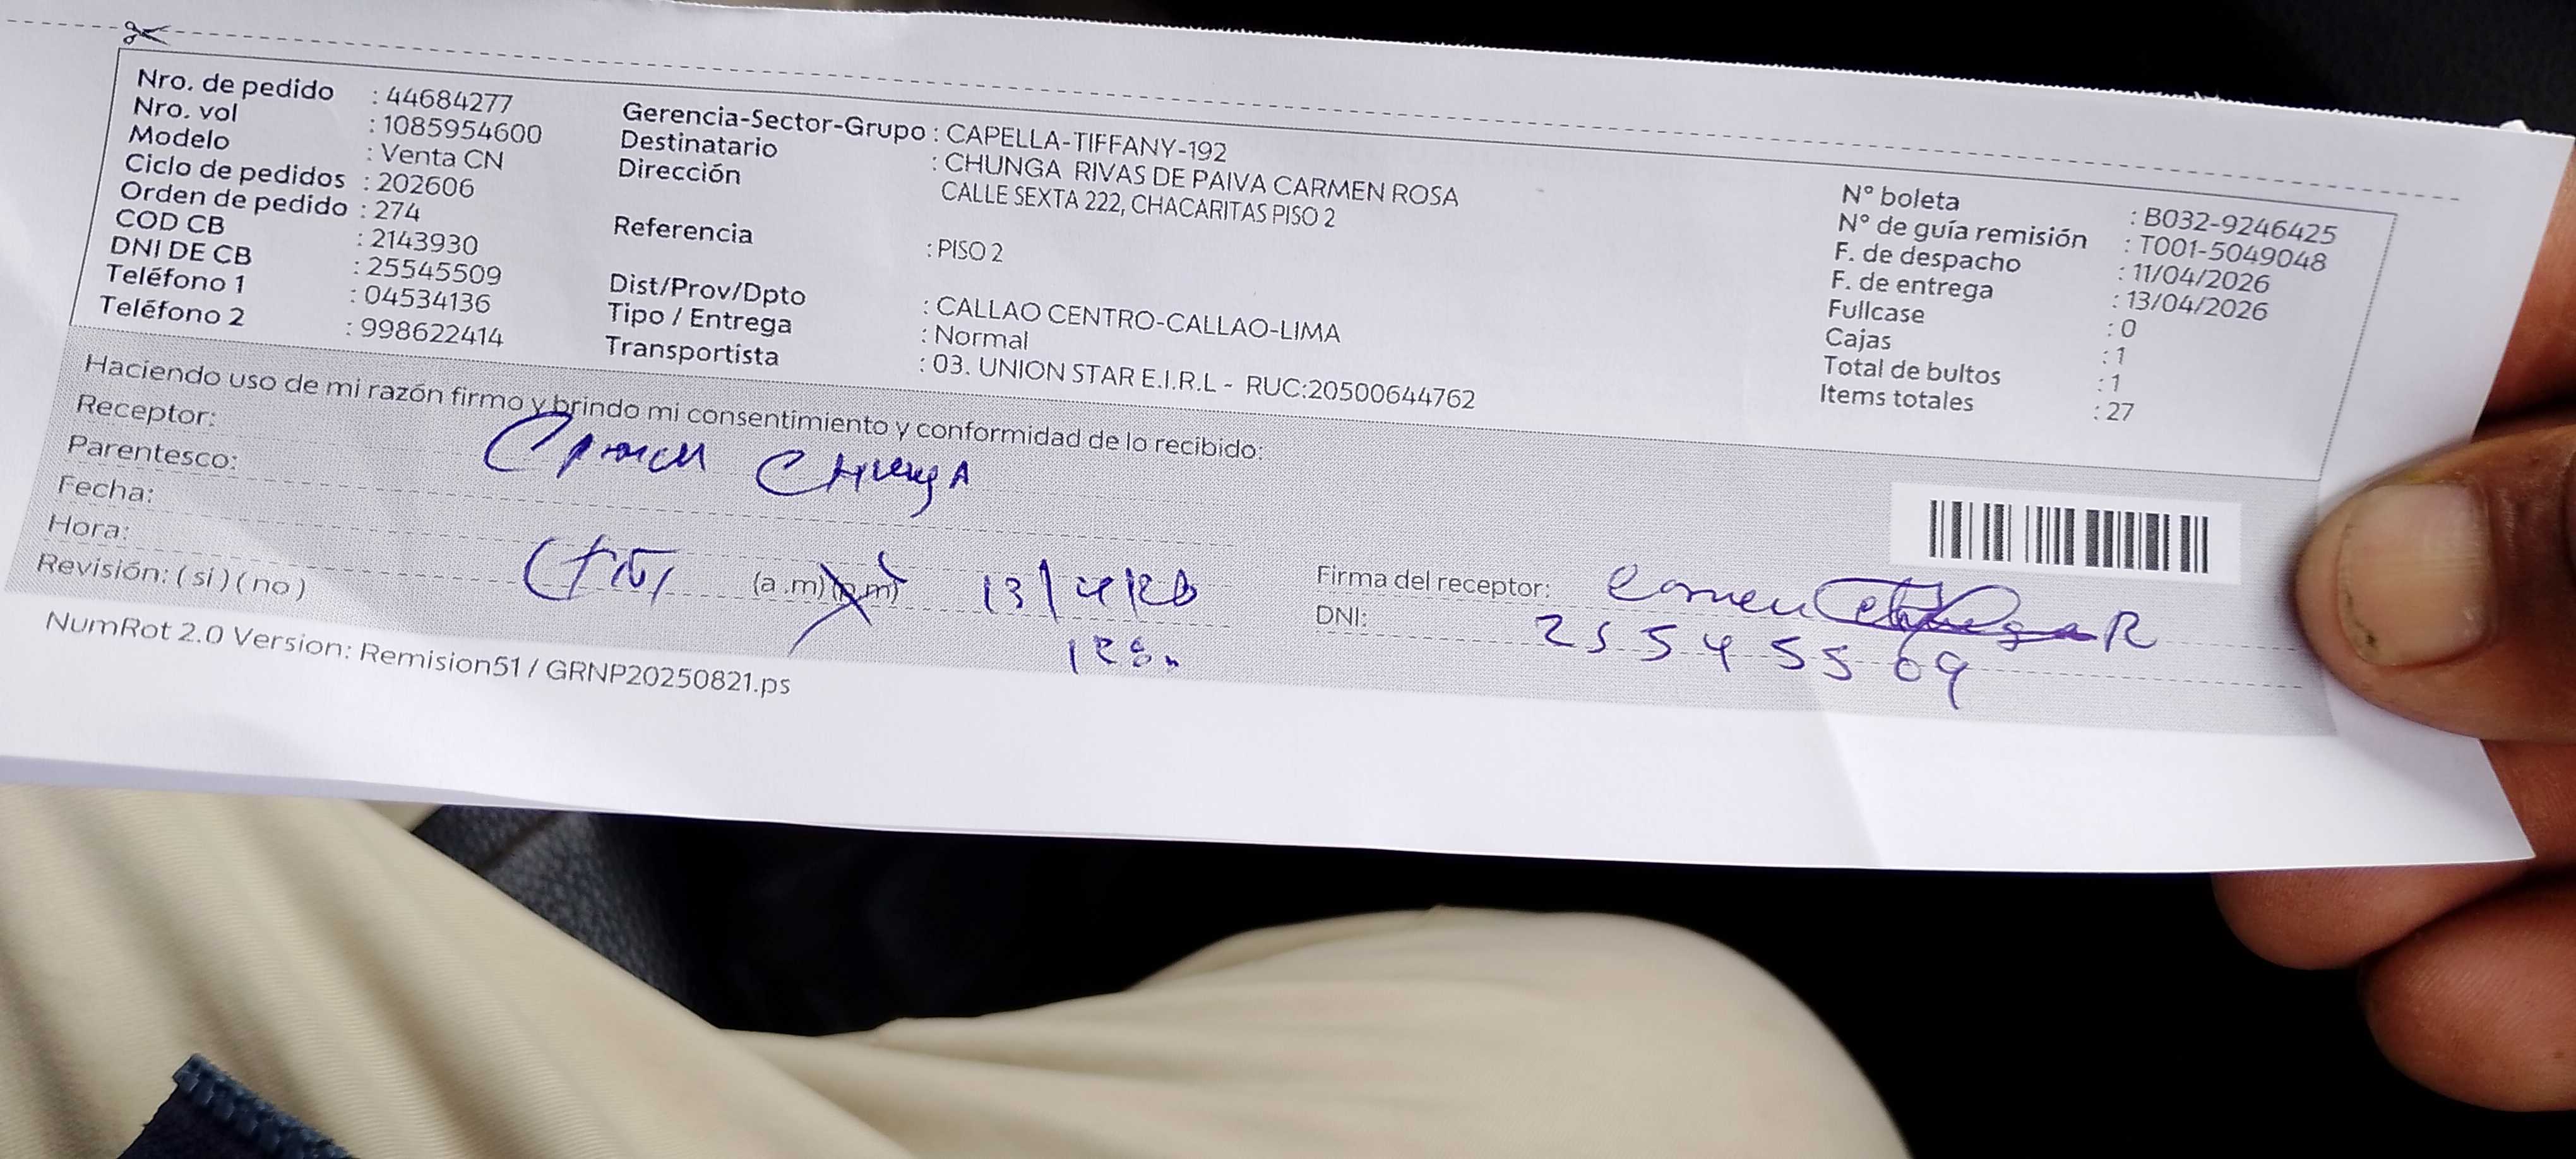 Nro. de pedido : 44684277
Nro. vol : 1085954600
Modelo : Venta CN
Ciclo de pedidos : 202606
Orden de pedido : 274
COD CB : 2143930
DNI DE CB : 25545509
Teléfono 1 : 04534136
Teléfono 2 : 998622414
Gerencia-Sector-Grupo : CAPELLA-TIFFANY-192
Destinatario : CHUNGA RIVAS DE PAIVA CARMEN ROSA
Dirección CALLE SEXTA 222, CHACARITAS PISO 2
Referencia : PISO 2
Dist/Prov/Dpto : CALLAO CENTRO-CALLAO-LIMA
Tipo / Entrega : Normal
Transportista : 03. UNION STAR E.I.R.L - RUC:20500644762
N° boleta : B032-9246425
N° de guía remisión : T001-5049048
F. de despacho : 11/04/2026
F. de entrega : 13/04/2026
Fullcase : 0
Cajas : 1
Total de bultos : 1
Items totales : 27
Haciendo uso de mi razón firmo y brindo mi consentimiento y conformidad de lo recibido:
Receptor: Carmen Chunga
Parentesco:
Fecha:
Hora: (a.m)(p.m) 13/4/26
Revisión: ( si ) ( no )
Firma del receptor: Carmen Chunga R
DNI: 25545509
NumRot 2.0 Version: Remision51 / GRNP20250821.ps